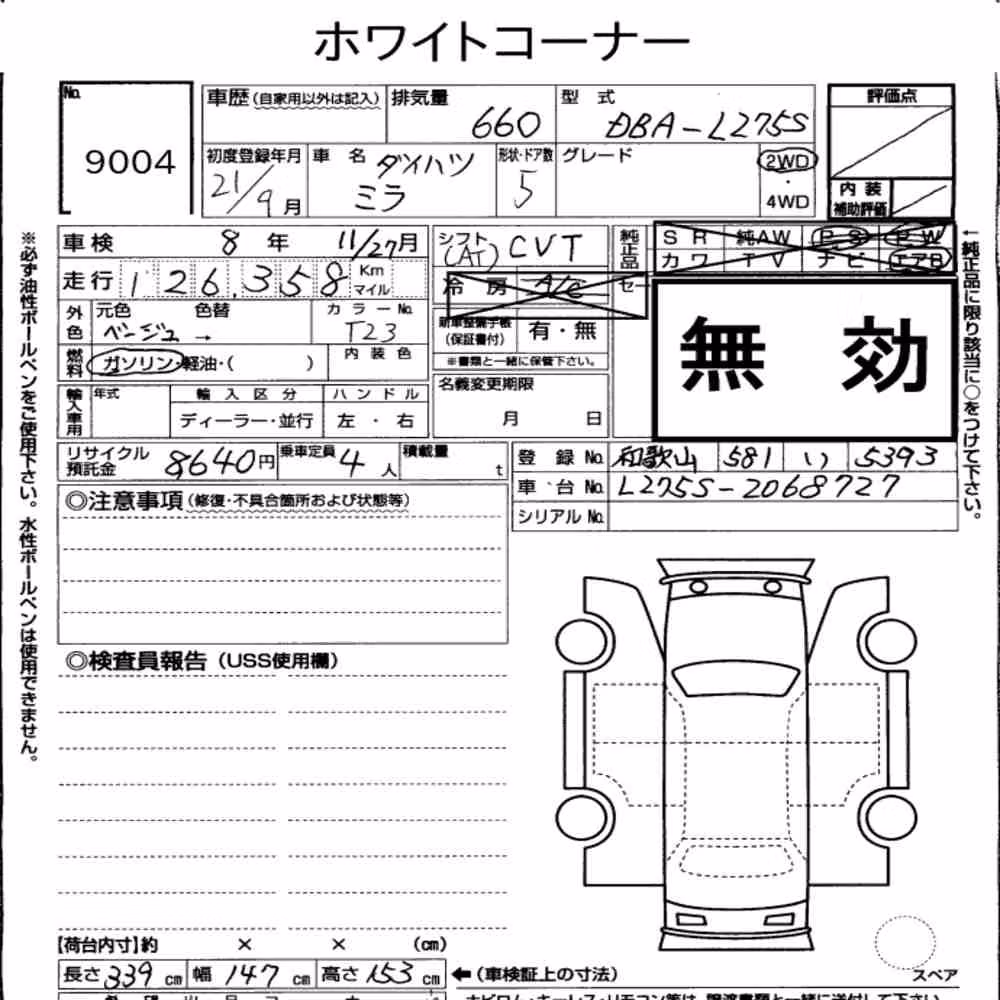 ホワイトコーナー
No.
9004
車歴(自家用以外は記入)
排気量
660
型 式
DBA-L275S
評価点
初度登録年月
21/9月
車 名
ダイハツ
ミラ
形状・ドア数
5
グレード
2WD
・
4WD
内装
補助評価
車検 8年 11/27月
シフト
(AT) CVT
純正品
SR 純AW PS PW
カワ TV ナビ エアB
走行 126,358 Km
マイル
冷房 A/C
セー
外色
元色 色替
ベージュ →
カラーNo.
T23
新車整備手帳
(保証書付)
有・無
※書類と一緒に保管下さい。
無 効
燃料
ガソリン・軽油・( )
内装色
輸入車用
年式
輸入区分
ディーラー・並行
ハンドル
左 ・ 右
名義変更期限
月 日
リサイクル
預託金
8640円
乗車定員 4人
積載量
t
登録No. 和歌山 581 い 5393
車台No. L275S-2068727
シリアルNo.
◎注意事項(修復・不具合箇所および状態等)
◎検査員報告(USS使用欄)
【荷台内寸】約 × × (cm)
長さ339cm 幅147cm 高さ153cm
←(車検証上の寸法)
スペア
※必ず油性ボールペンをご使用下さい。水性ボールペンは使用できません。
↑純正品に限り該当に○をつけて下さい。